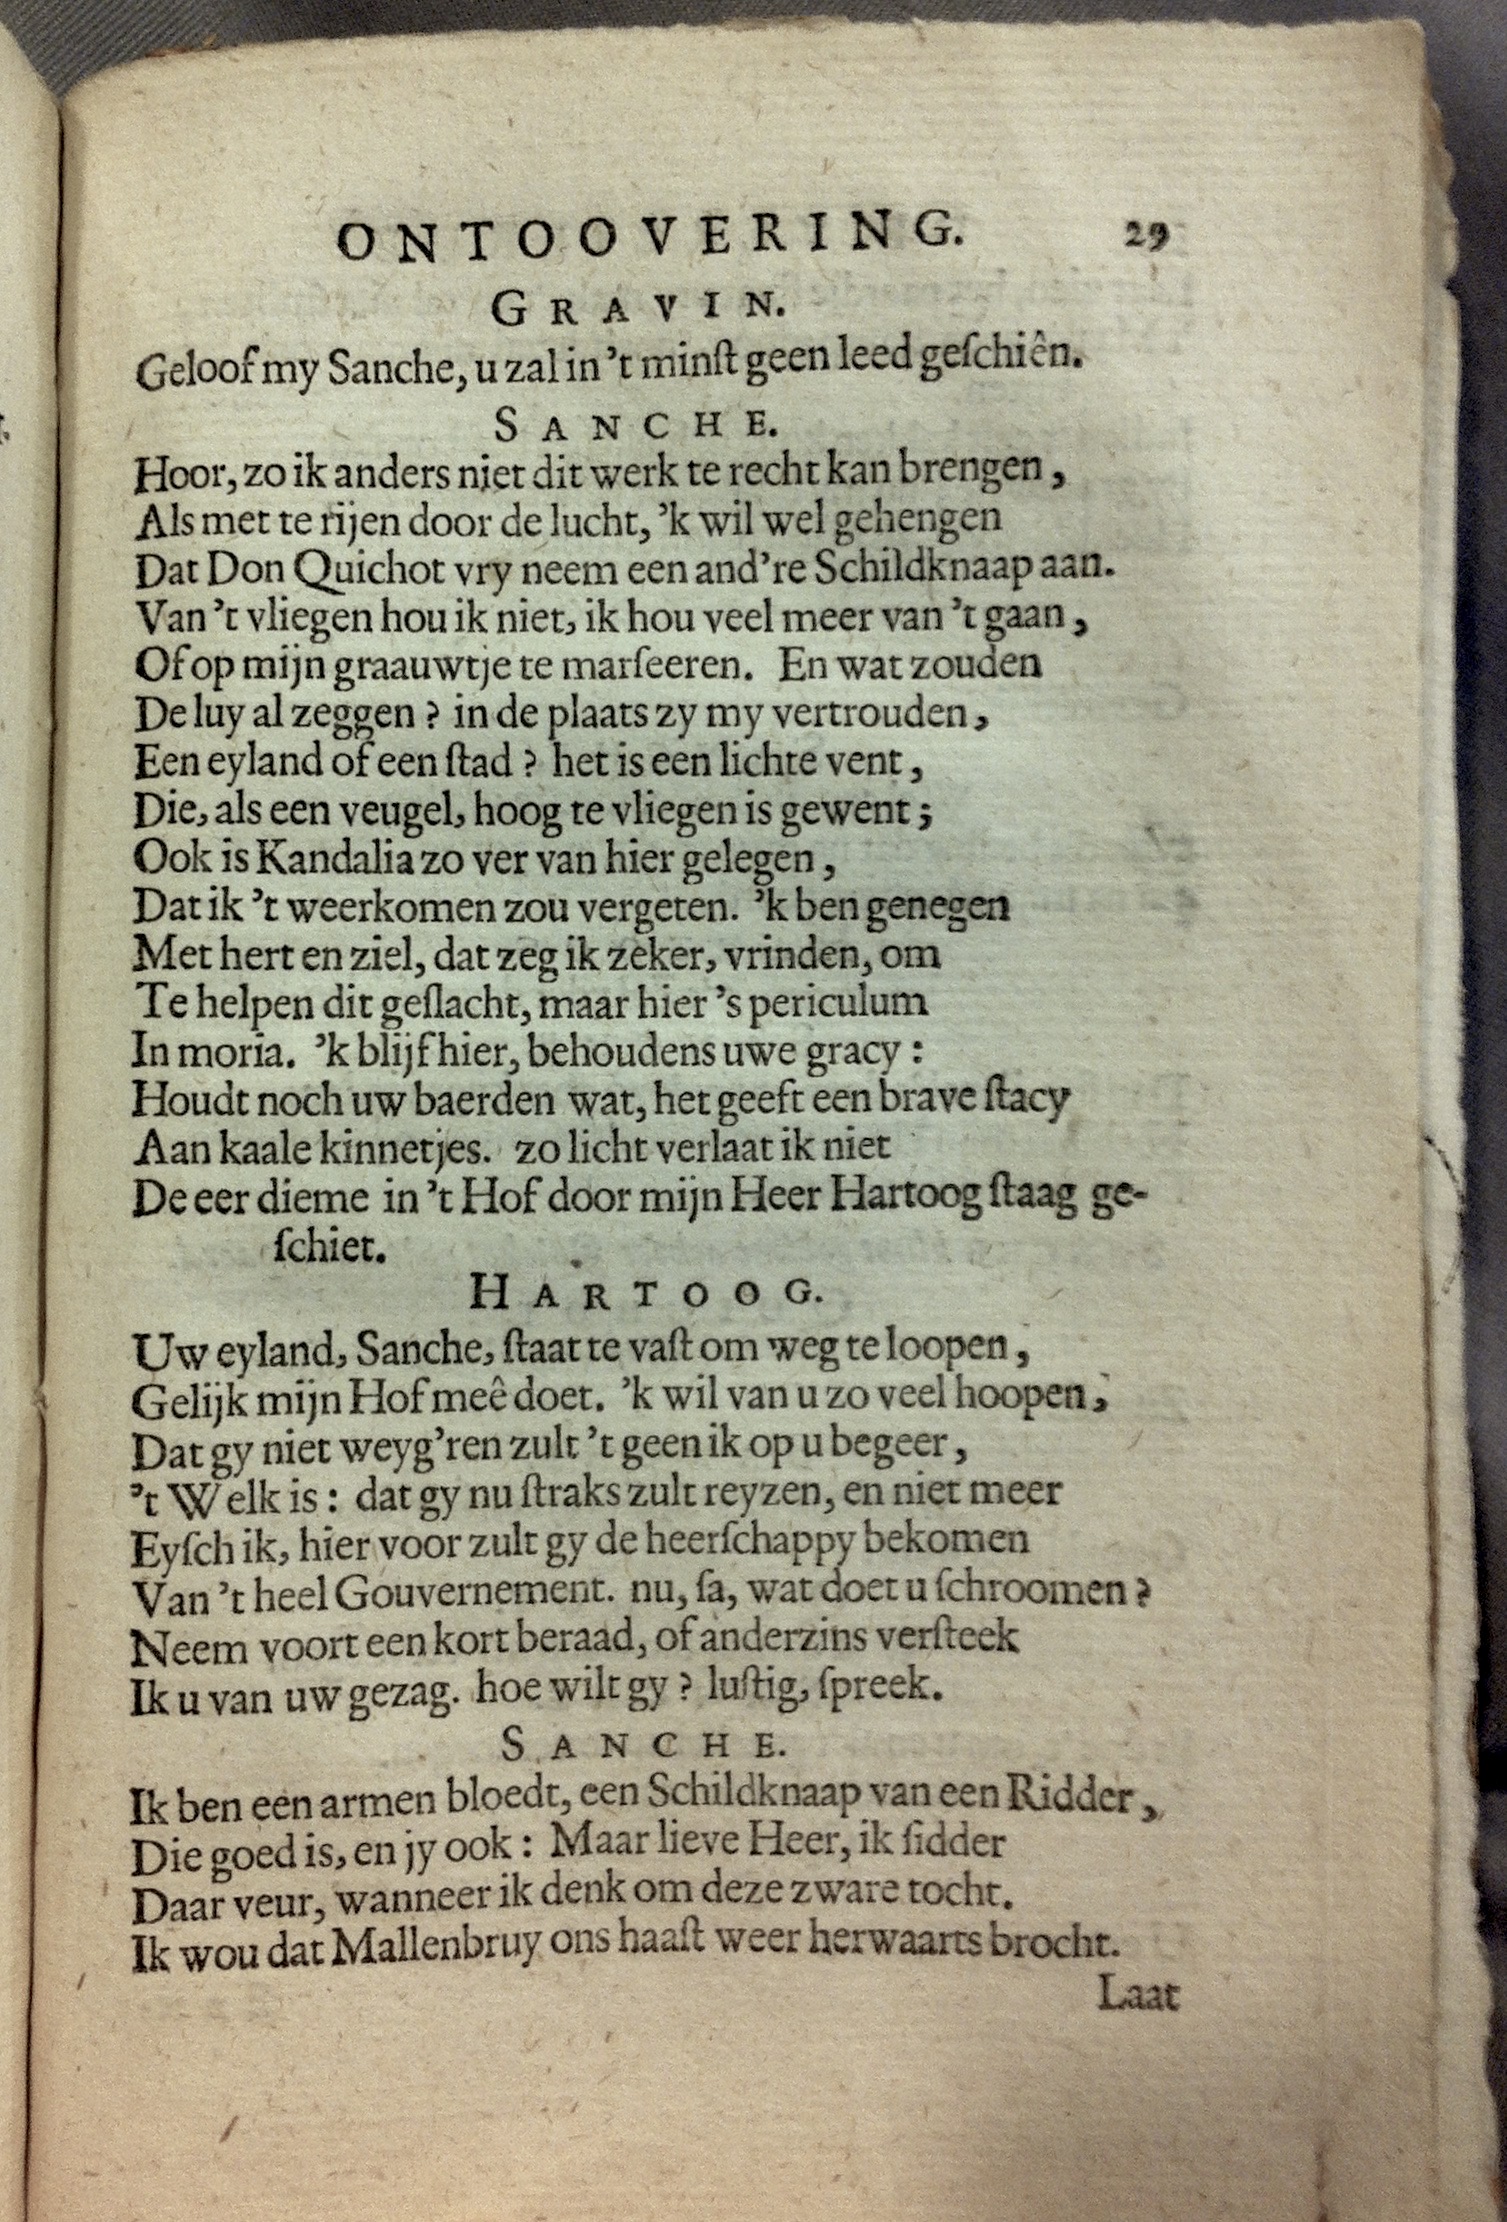 ONTOOVERING. 29
GRAVIN.
Geloof my Sanche, u zal in 't minſt geen leed geſchiên.
SANCHE.
Hoor, zo ik anders niet dit werk te recht kan brengen,
Als met te rijen door de lucht, 'k wil wel gehengen
Dat Don Quichot vry neem een and're Schildknaap aan.
Van 't vliegen hou ik niet, ik hou veel meer van 't gaan,
Of op mijn graauwtje te marſeeren. En wat zouden
De luy al zeggen? in de plaats zy my vertrouden,
Een eyland of een ſtad? het is een lichte vent,
Die, als een veugel, hoog te vliegen is gewent;
Ook is Kandalia zo ver van hier gelegen,
Dat ik 't weerkomen zou vergeten. 'k ben genegen
Met hert en ziel, dat zeg ik zeker, vrinden, om
Te helpen dit geſlacht, maar hier 's periculum
In moria. 'k blijf hier, behoudens uwe gracy:
Houdt noch uw baerden wat, het geeft een brave ſtacy
Aan kaale kinnetjes. zo licht verlaat ik niet
De eer die me in 't Hof door mijn Heer Hartoog ſtaag ge-
ſchiet.
HARTOOG.
Uw eyland, Sanche, ſtaat te vaſt om weg te loopen,
Gelijk mijn Hof meê doet. 'k wil van u zo veel hoopen,
Dat gy niet weyg'ren zult 't geen ik op u begeer,
't Welk is: dat gy nu ſtraks zult reyzen, en niet meer
Eyſch ik, hier voor zult gy de heerſchappy bekomen
Van 't heel Gouvernement. nu, ſa, wat doet u ſchroomen?
Neem voort een kort beraad, of anderzins verſteek
Ik u van uw gezag. hoe wilt gy? luſtig, ſpreek.
SANCHE.
Ik ben een armen bloedt, een Schildknaap van een Ridder,
Die goed is, en jy ook: Maar lieve Heer, ik ſidder
Daar veur, wanneer ik denk om deze zware tocht.
Ik wou dat Mallenbruy ons haaſt weer herwaarts brocht.
Laat